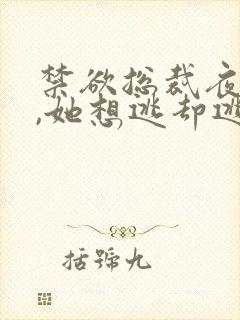 禁欲总裁夜
,她想逃却逃
括號九